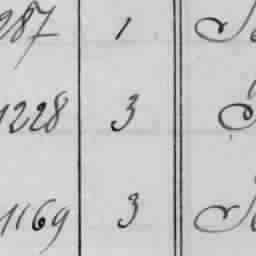 287 1
1228 3
1169 3